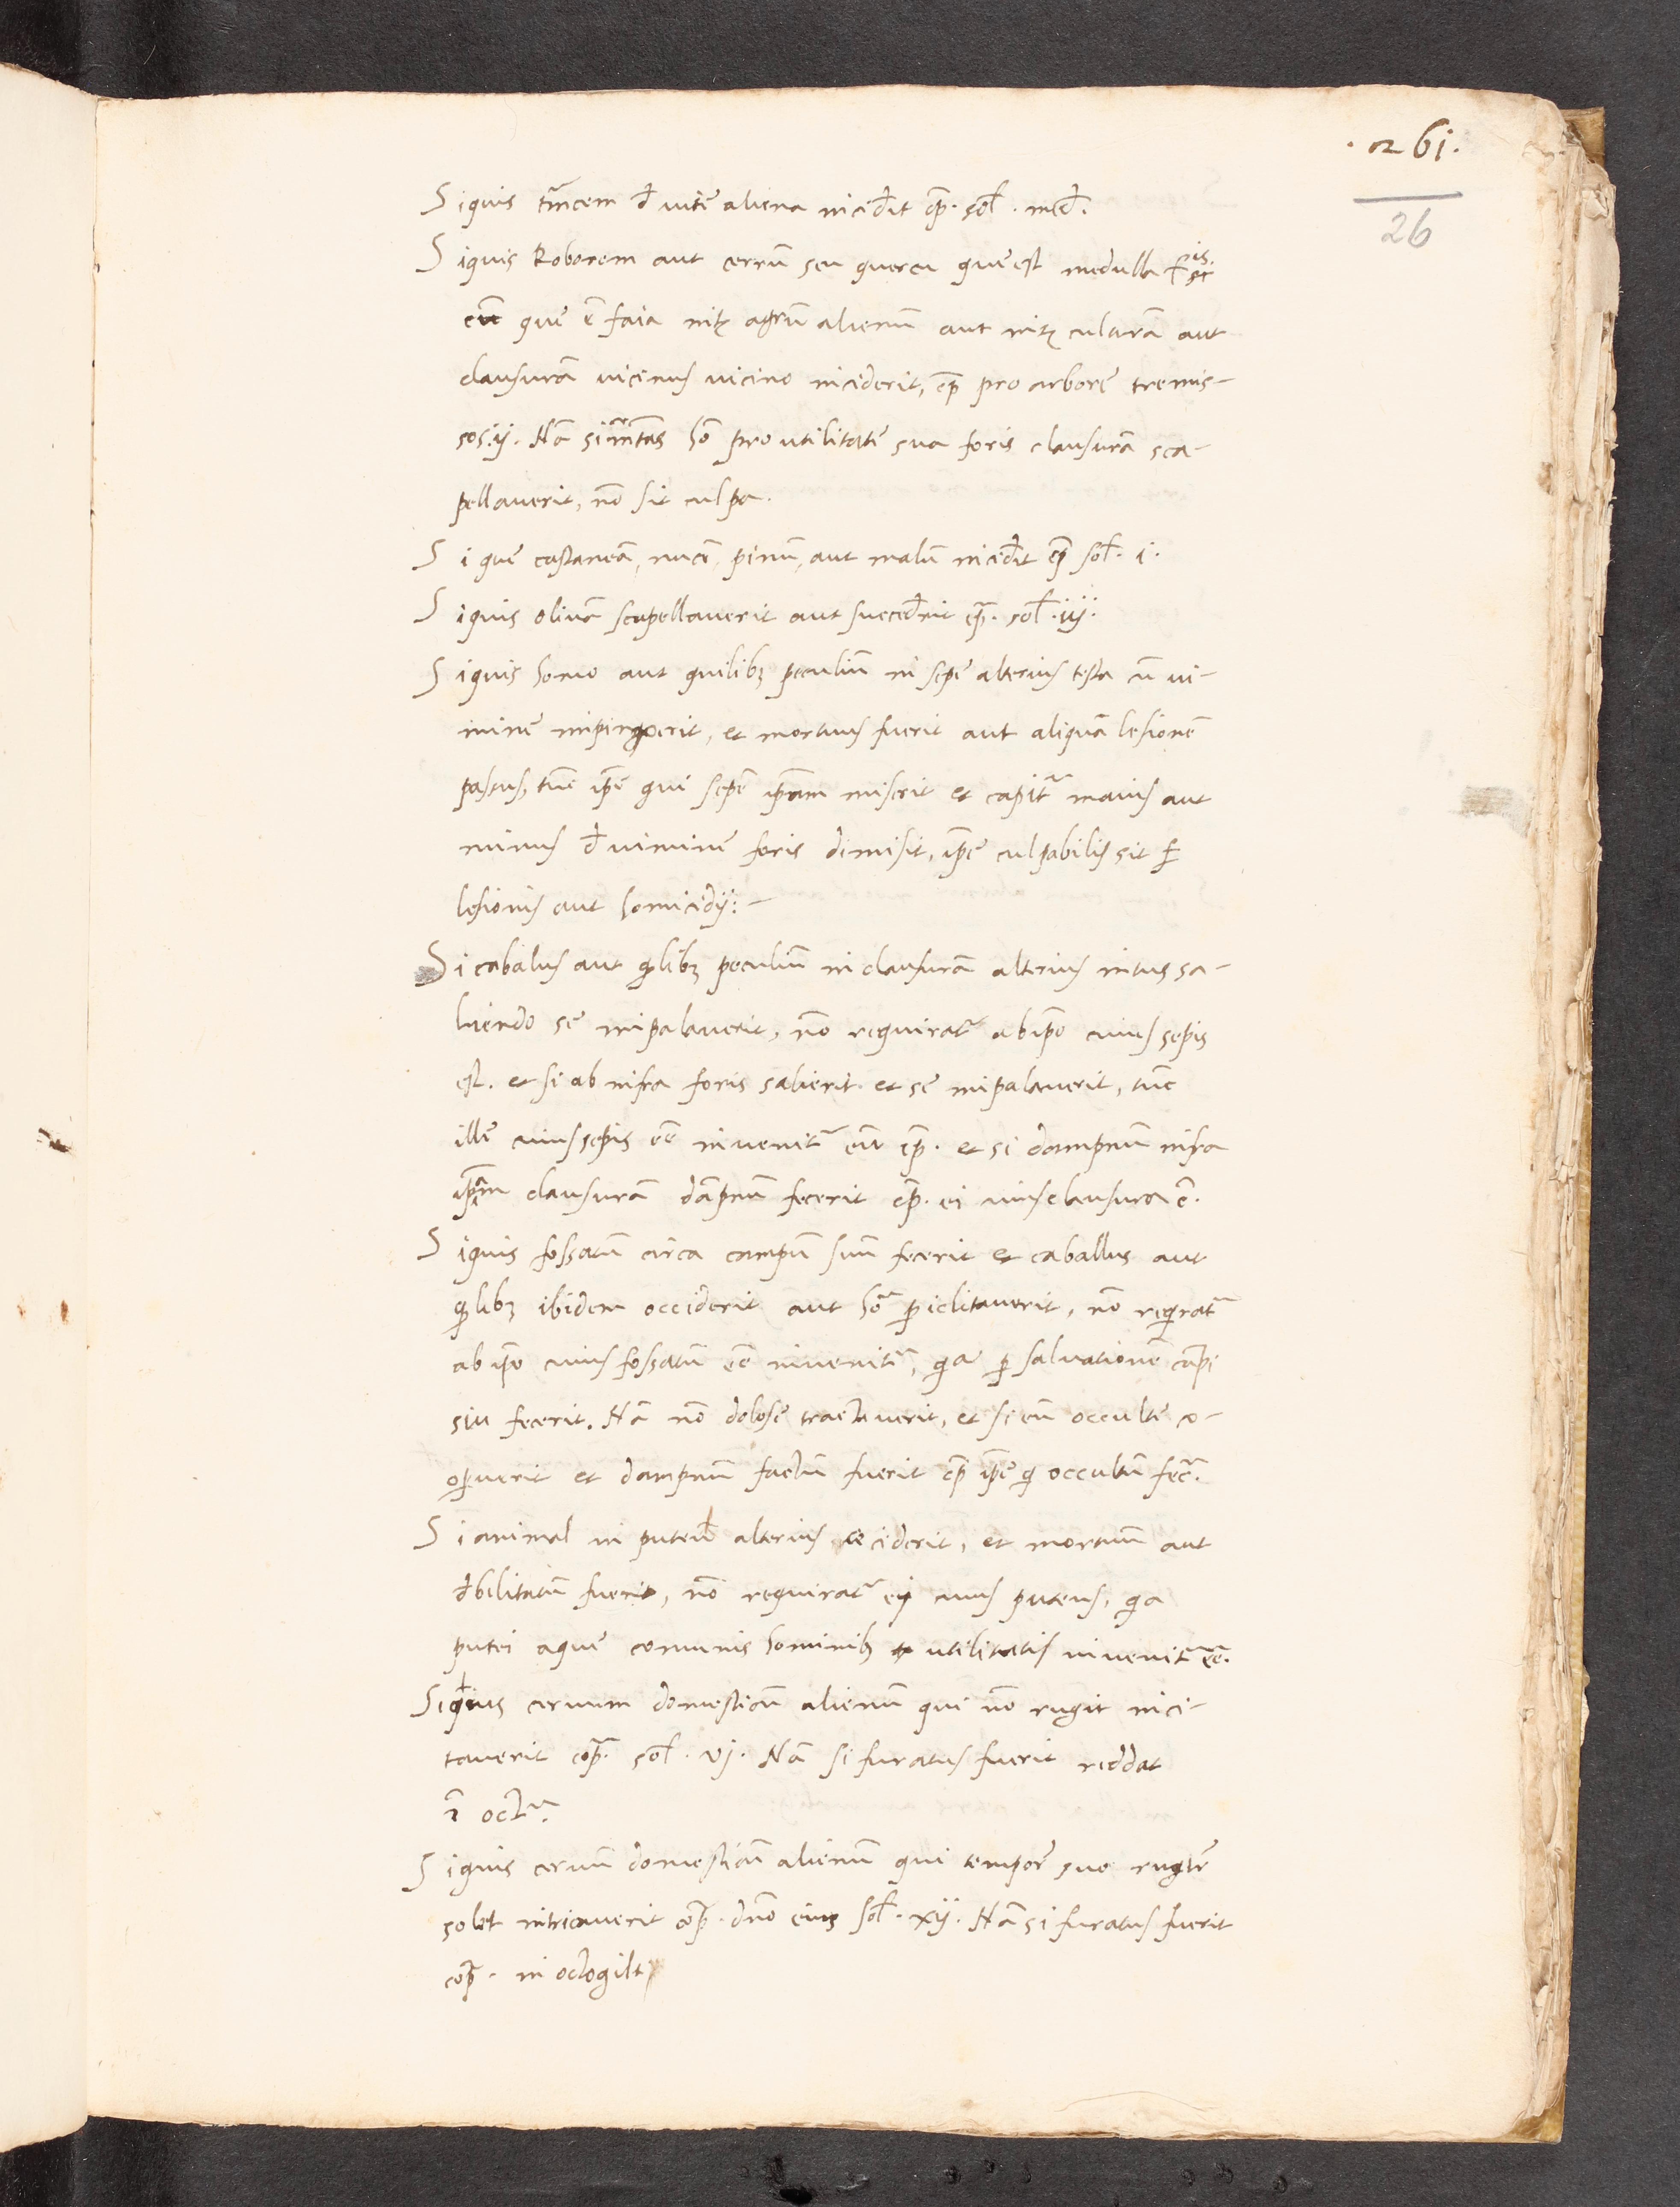 . 261 .
26
Siquis tm̃cem đ vitẽ aliena incidĩt cp̃. sol̃. med̃.
Siquis Roborem aut cerrũ seu quercu que est medulla
que ẽ faia intʒ agrũ alienũ aut intʒ culturã aut
clausurã vicinus vicino inciderit, cp̃ pro arborẽ tremis-
sos. ij. Nã si hõ pro utilitatẽ sua foris clausurã sca-
pellaverit, nõ sit culpa.
Si quẽ castaneã, nucẽ, pinũ, aut malũ incidĩt cp̃ sol̃. i.
Siquis olivã scapellaverit aut succedrit cp̃. sol̃. iij.
Siquis homo aut quilibʒ peculiũ in sepẽ alterius testa cũ vi-
minẽ inpingerit, et mortuus fuerit aut aliquã lesionẽ
passus, tũc ip̃e qui sepẽ ip̃am miserit et capit̃ maius aut
minus đ viminẽ foris dimisit, ip̃e culpabilis sit ꝑ
lesionis aut homicidij: -
Si cabalus aut qlibʒ peculiũ in clausurã alterius intus sa-
liendo se inpalaverit, nõ requirat̃ ab ip̃o cuius sepis
est. et si ab infra foris salierit et se inpalaverit, tũc
illẽ cuius sepis eẽ invenit̃ eũ cp̃. et si dampnũ infra
ip̃am clausurã dãpnũ fecerit cp̃. ei cuius clausura ẽ.
Siquis fossatũ circa campũ suũ fecerit et caballus aut
qlibʒ ibidem occiderit aut hõ ꝑiclitaverit, nõ reqirat̃
ab ip̃o cuius fossatũ eẽ invenit̃, qa ꝓ salvationẽ cãpi
sui fecerit. Nã nõ dolosẽ tractaverit, et si eũ occultẽ co-
oꝑuerit et dampnũ factũ fuerit cp̃ ip̃e q occultũ fec̃.
Si animal in puteũ alterius ceciderit, et mortuũ aut
đbilitatũ fuerit, nõ requirat̃ ei cuius puteus, qa
putei aque comunis hominibʒ utilitatis invenit̃ eẽ.
Siquis cervum domesticũ alienũ qui nõ rugit inci-
taverit cop̃. sol̃. vj. Nã si furatus fuerit reddat
ĩ oct̃.
Siquis cervũ domesticũ alienũ qui temporẽ suo rugirẽ
solet intricaverit cop̃. dño eius sol̃. xij. Nã si furatus fuerit
cop̃. in octogilt